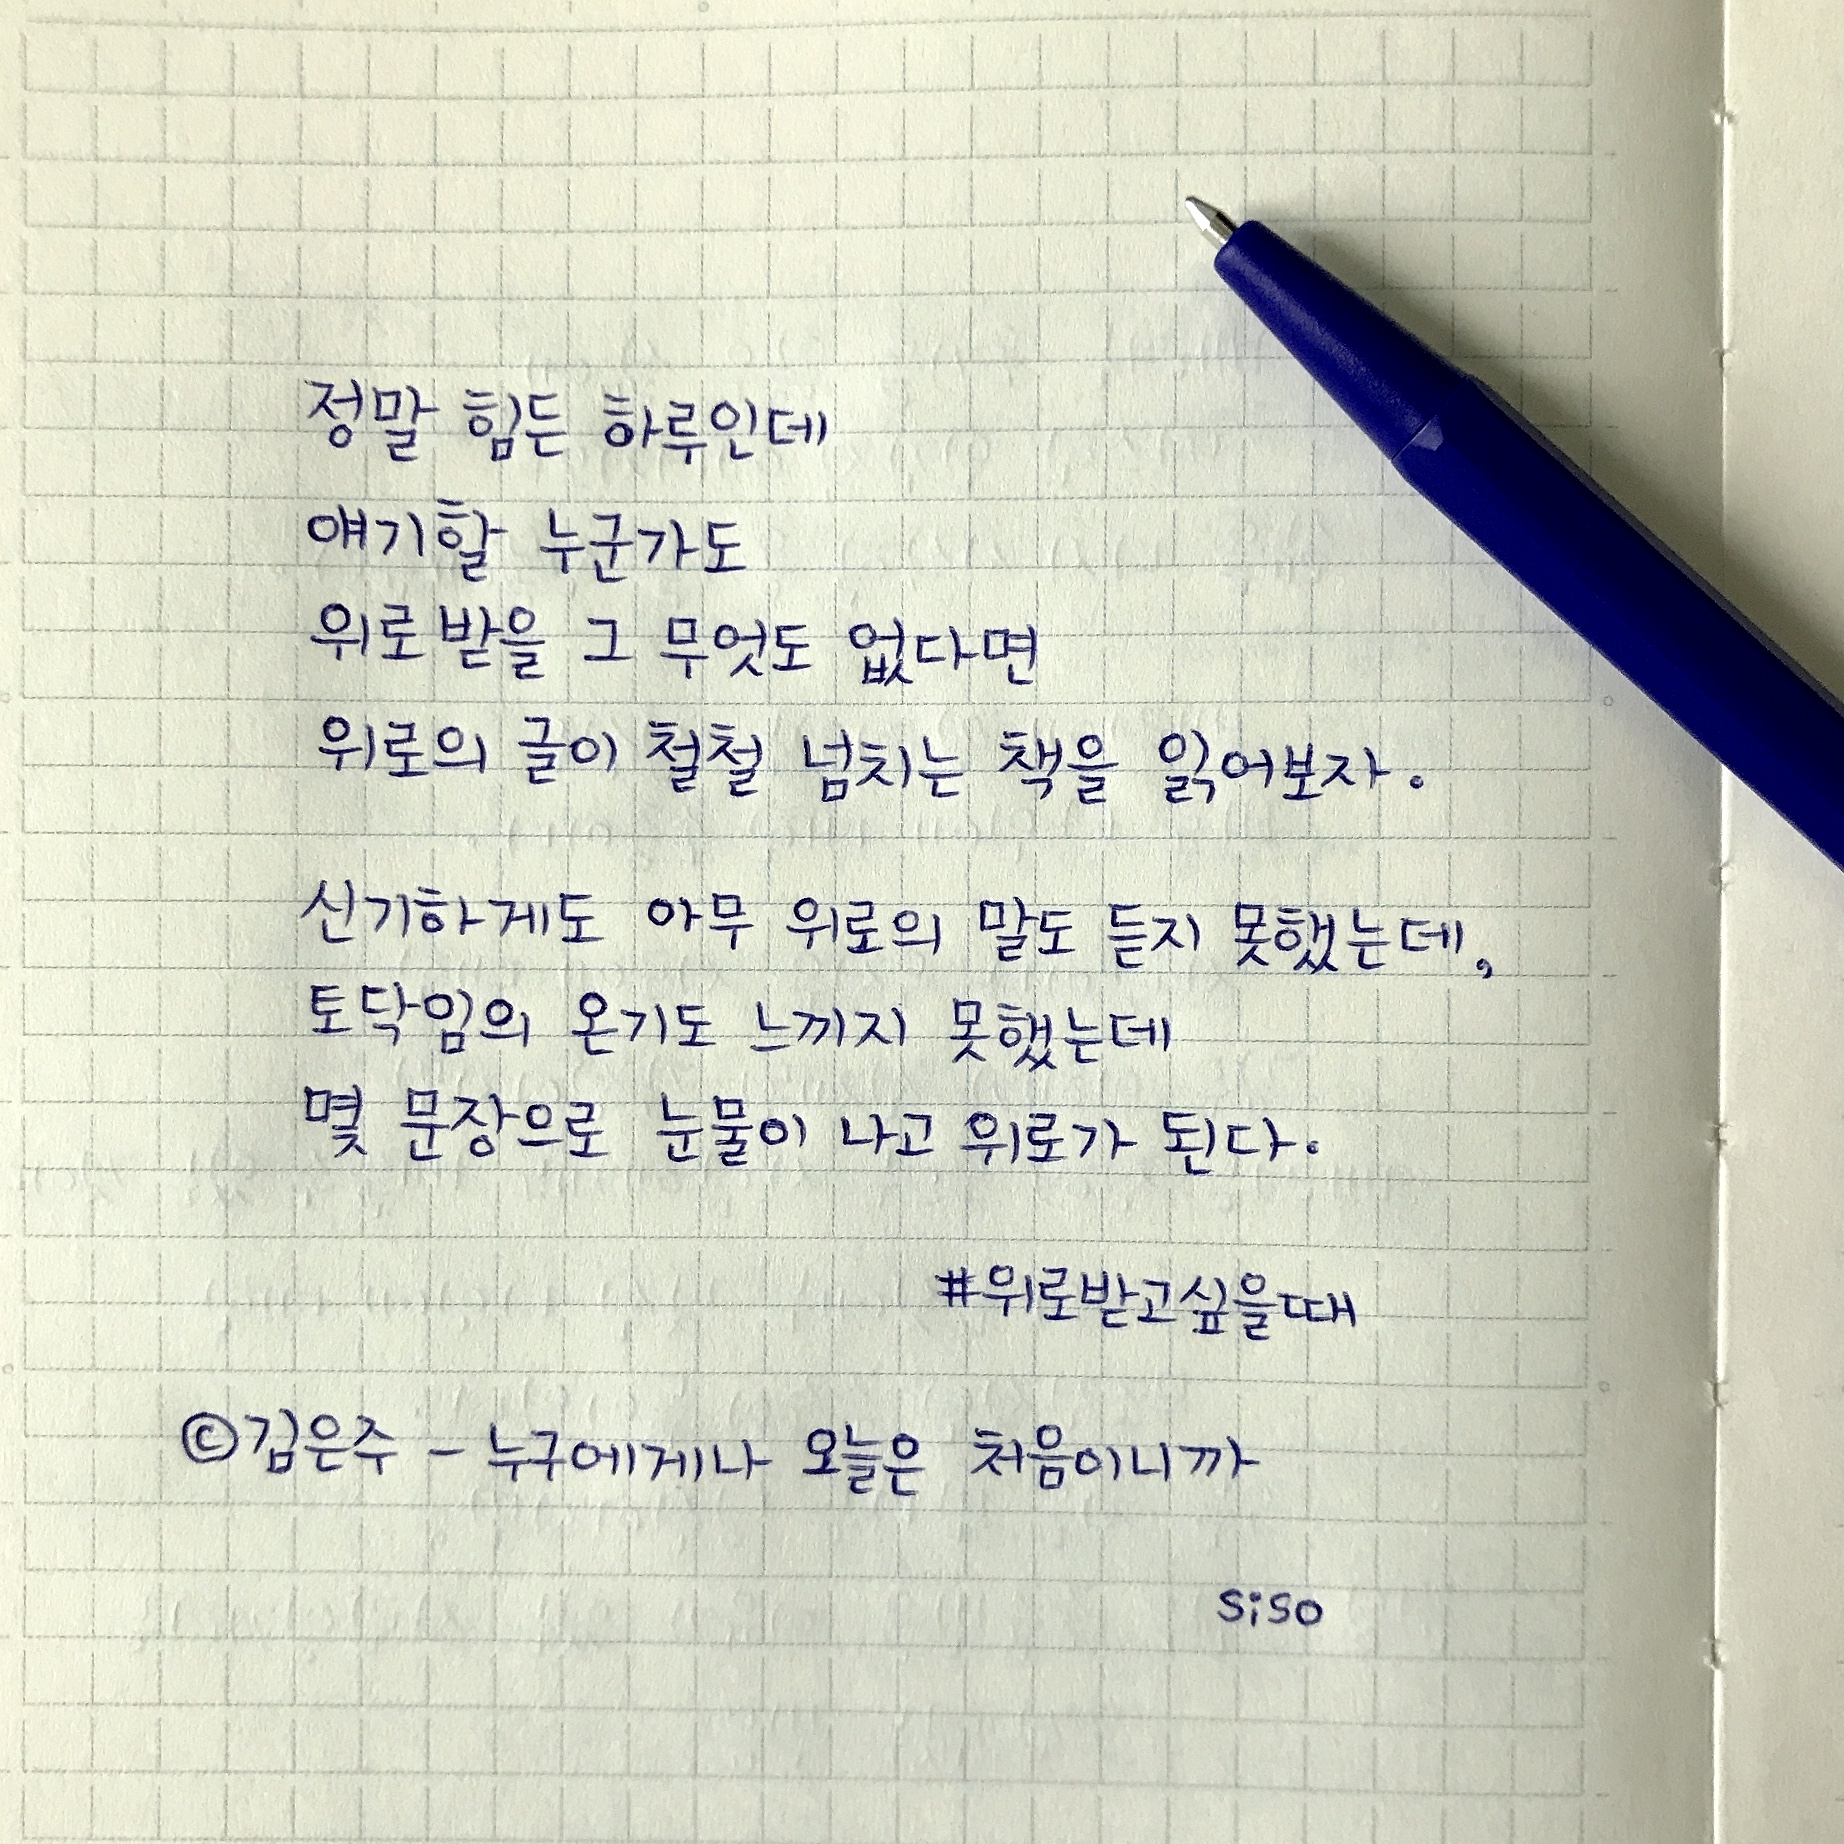 정말 힘든 하루인데
얘기할 누군가도
위로 받을 그 무엇도 없다면
위로의 글이 철철 넘치는 책을 읽어보자.
신기하게도 아무 위로의 말도 듣지 못했는데,
토닥임의 온기도 느끼지 못했는데
몇 문장으로 눈물이 나고 위로가 된다.
#위로받고싶을때
©김은주 - 누구에게나 오늘은 처음이니까
siso